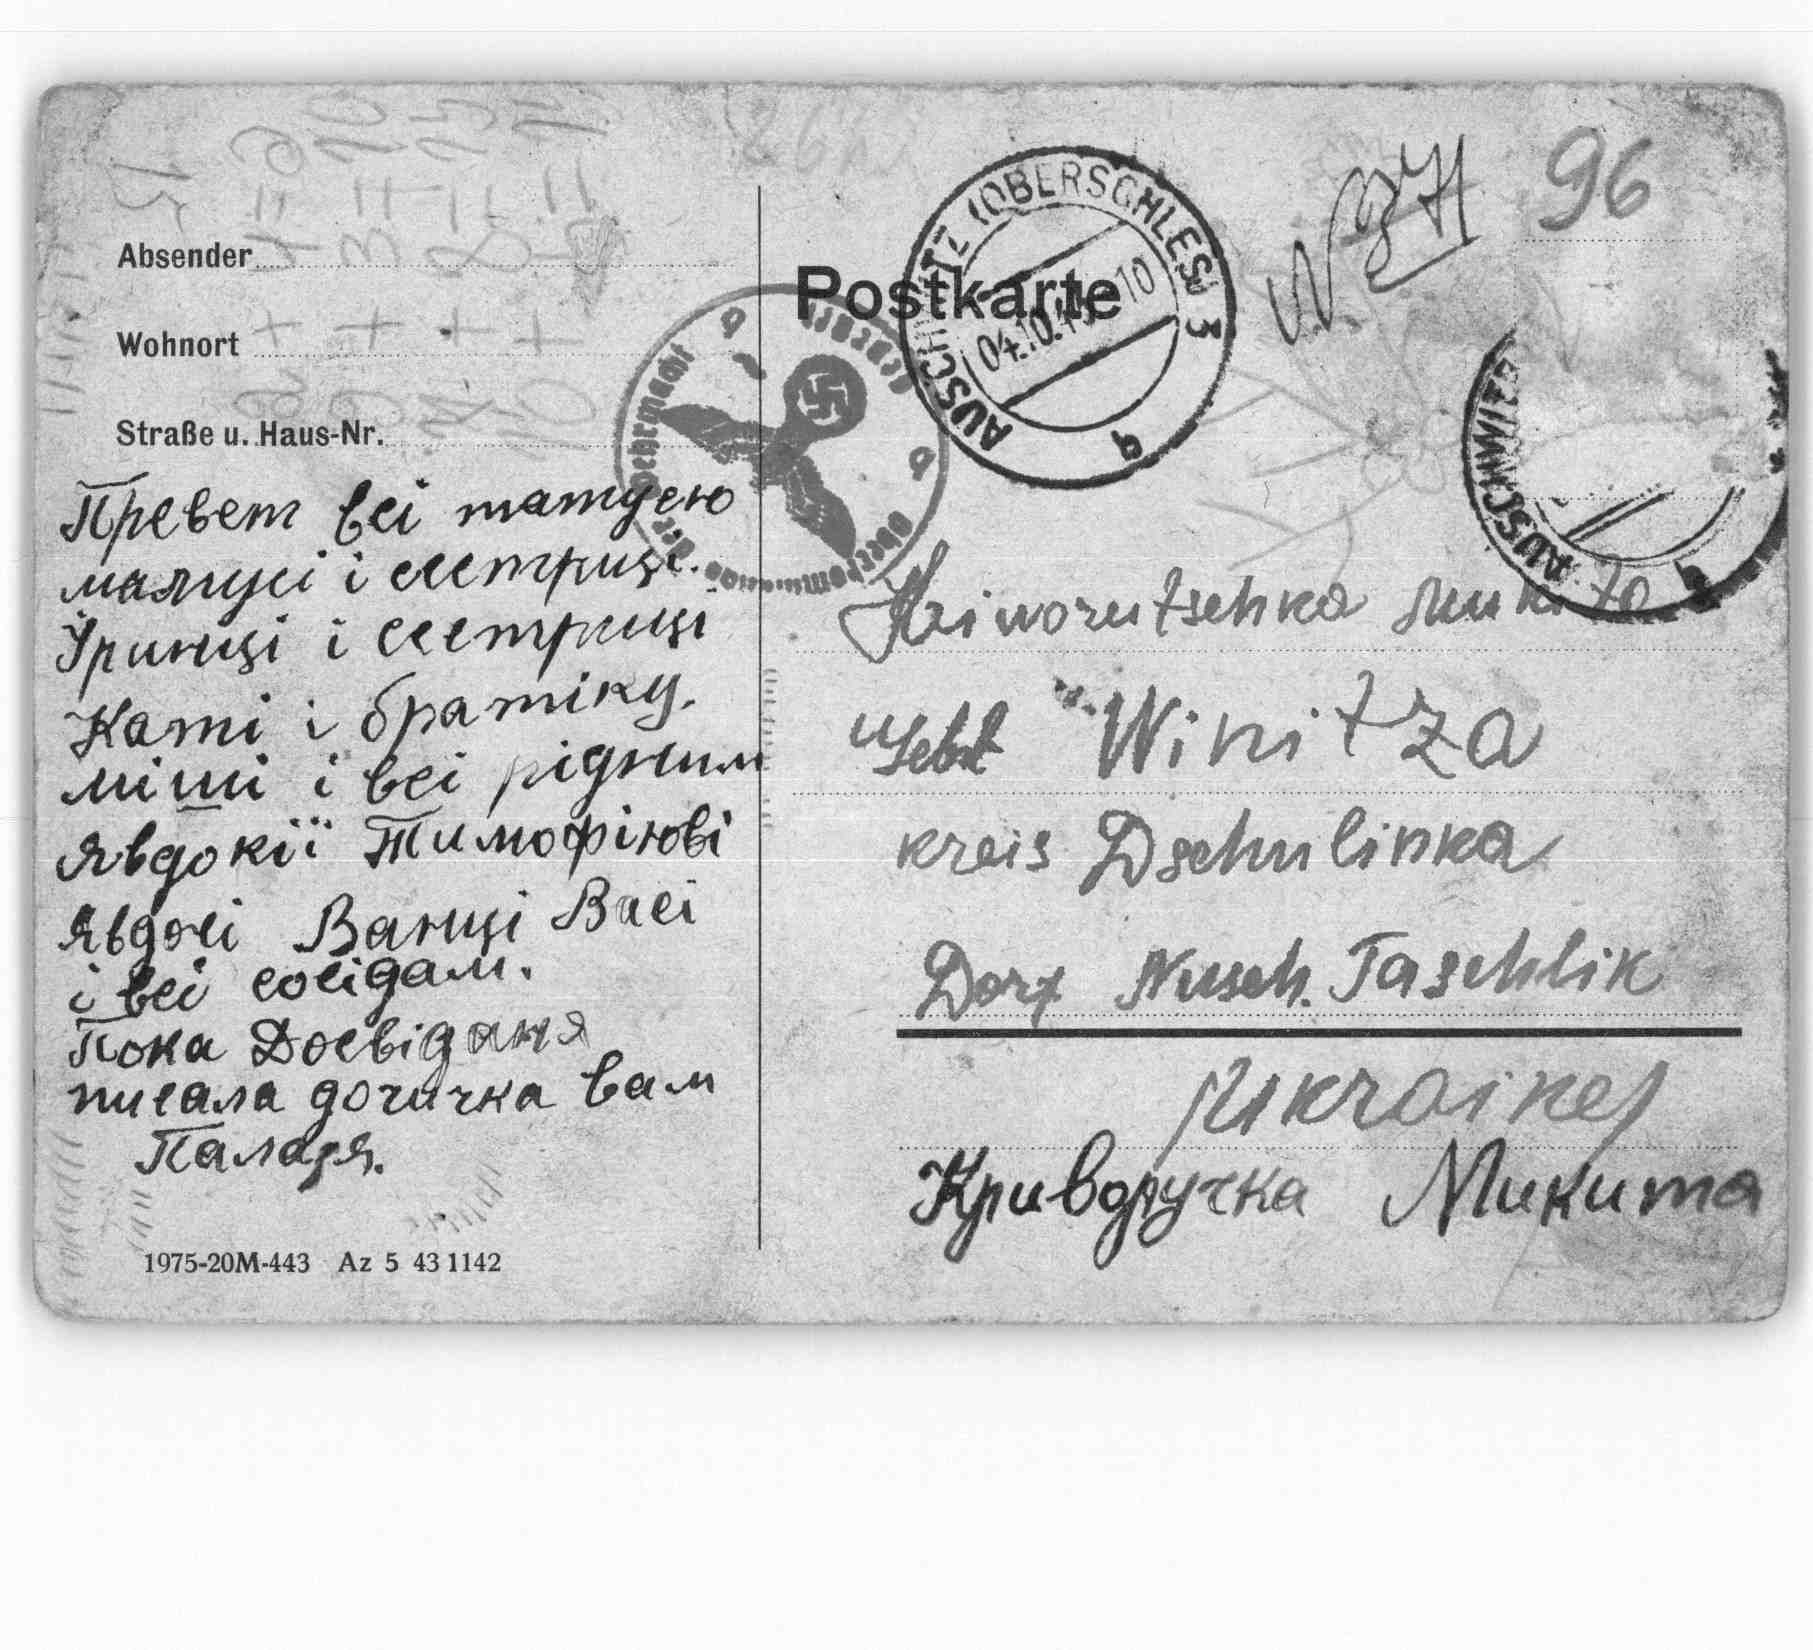 96
Absender
Wohnort
Straße u. Haus-Nr.
Postkarte
AUSCHWITZ (OBERSCHLES) 3
04.10.43 10
a
AUSCHWITZ
Oberkommando der Wehrmacht
Превет всі татусю
мамусі і сестриці.
Їриниці і сестриці
Каті і братіку.
міші і всі рідним
Явдокії Тимофіюві
Явдосі Ваниці Васі
і всі сосідам.
Пока Досвіданя
писала дочичка вам
Палазя.
1975-20M-443 Az 5 43 1142
Kriworutschka
Winitza
kreis Dschulinka
Dorf Nusch. Taschlik
Ukraine
Криворучка Микита